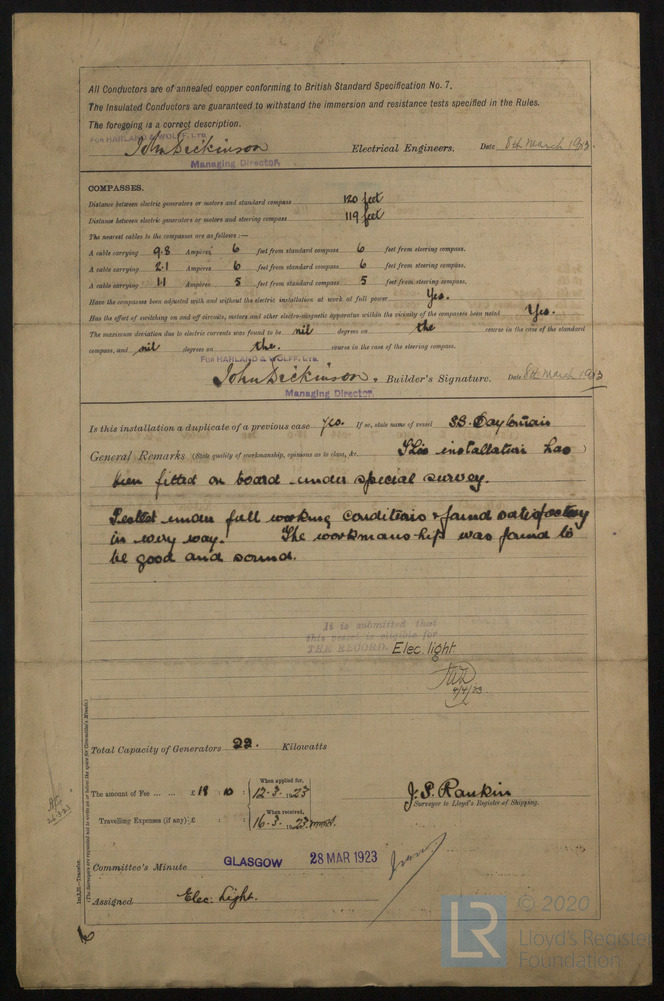 All Conductors are of annealed copper conforming to British Standard Specification No. 7.
The Insulated Conductors are guaranteed to withstand the immersion and resistance tests specified in the Rules.
The foregoing is a correct description.
FOR HARLAND & WOLFF, LTD.
John Dickinson Electrical Engineers. Date 8th March 1923.
Managing Director.
COMPASSES.
Distance between electric generators or motors and standard compass 120 feet
Distance between electric generators or motors and steering compass 119 feet
The nearest cables to the compasses are as follows :—
A cable carrying 9.8 Ampères 6 feet from standard compass 6 feet from steering compass.
A cable carrying 2.1 Ampères 6 feet from standard compass 6 feet from steering compass.
A cable carrying 1.1 Ampères 5 feet from standard compass 5 feet from steering compass.
Have the compasses been adjusted with and without the electric installation at work at full power Yes.
Has the effect of switching on and off circuits, motors and other electro-magnetic apparatus within the vicinity of the compasses been noted Yes.
The maximum deviation due to electric currents was found to be nil degrees on the course in the case of the standard
compass, and nil degrees on the. course in the case of the steering compass.
FOR HARLAND & WOLFF, LTD.
John Dickinson. Builder's Signature. Date 8th March 1923
Managing Director.
Is this installation a duplicate of a previous case yes. If so, state name of vessel SS.
General Remarks (State quality of workmanship, opinions as to class, &c. This installation has
been fitted on board under special survey.
Tested under full working conditions & found satisfactory
in every way. The workmanship was found to
be good and sound.
It is submitted that
this vessel is eligible for
THE RECORD. Elec. light.
4/4/23
Total Capacity of Generators 22. Kilowatts
The amount of Fee ... ... £ 18 : 10 : When applied for, 12.3.1923
J. S. Rankin
Surveyor to Lloyd's Register of Shipping.
Travelling Expenses (if any) £ : : When received, 16.3.1923
Committee's Minute GLASGOW 28 MAR 1923
Assigned Elec. Light.
Im.3.21—Transfer.
(The Surveyors are requested not to write on or below the space for Committee's Minute.)
LR © 2020
Lloyd's Register
Foundation